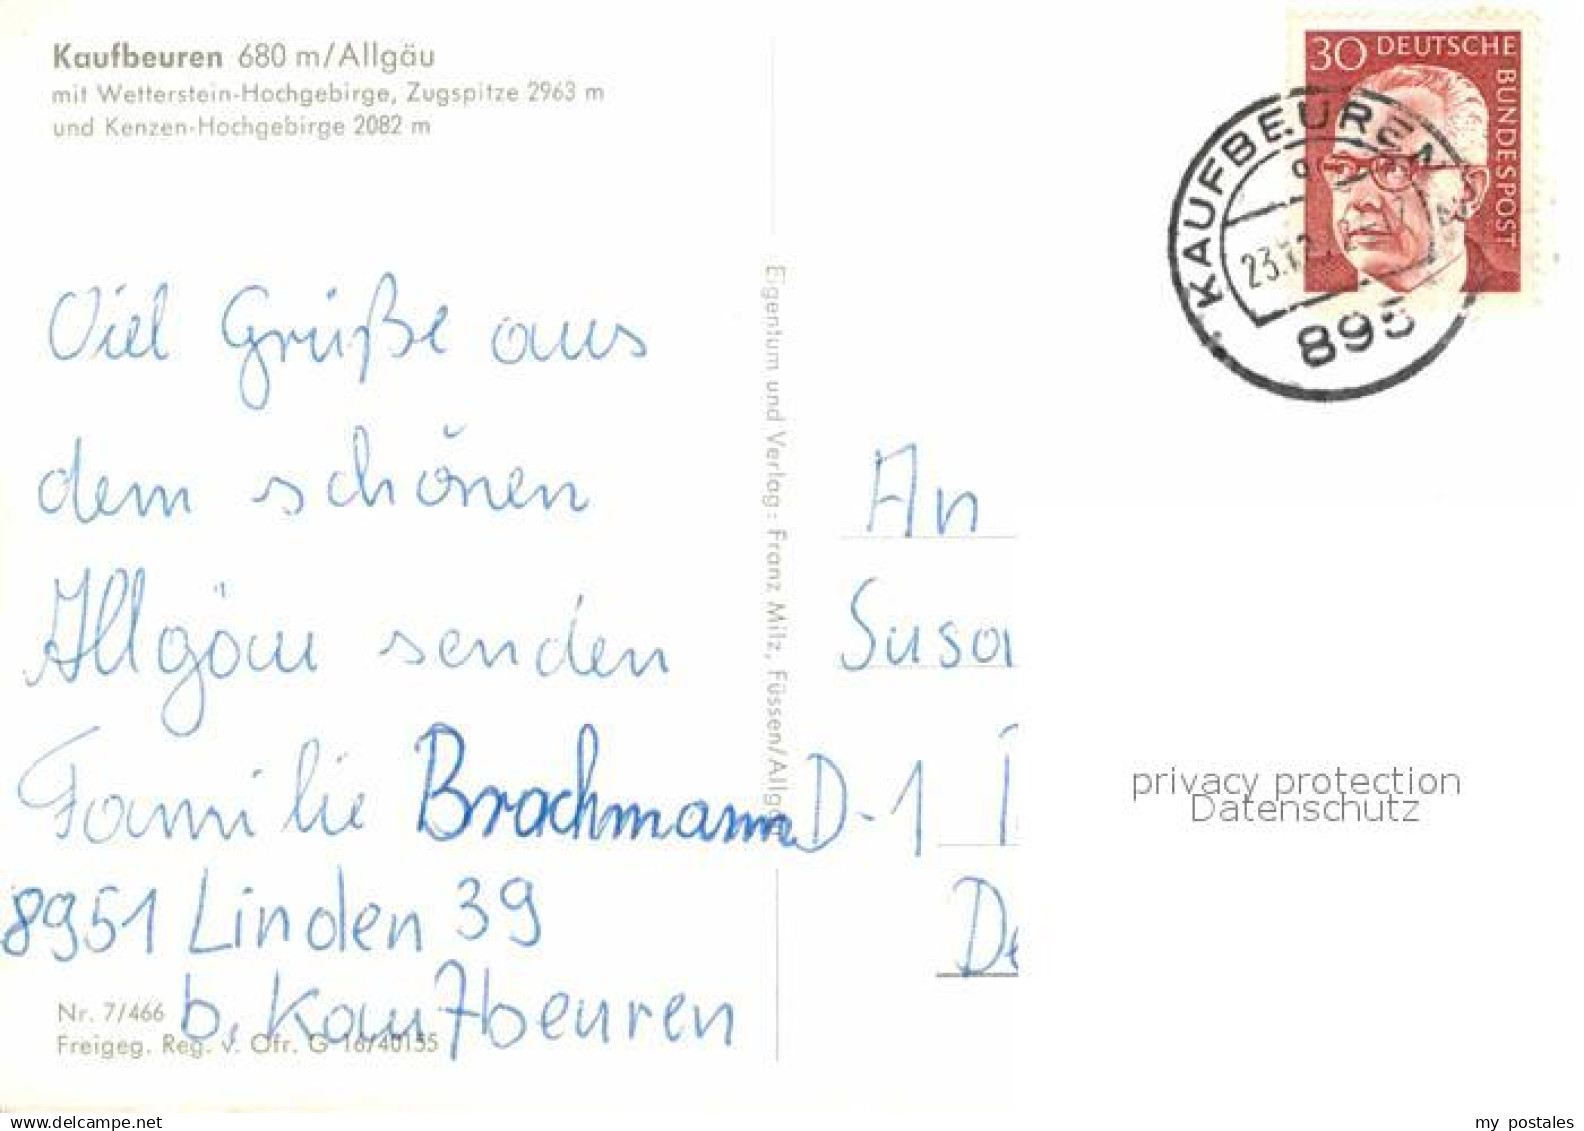 Kaufbeuren 680 m/Allgäu
mit Wetterstein-Hochgebirge, Zugspitze 2963 m
und Kenzen-Hochgebirge 2082 m
Viel Grüße aus
dem schönen
Allgöau senden
Familie Brachmann
8951 Linden 39
b. Kaufbeuren
Nr. 7/466
Freigeg. Reg. v. Ofr. G 16/40155
Eigentum und Verlag: Franz Milz, Füssen/Allgäu
30 DEUTSCHE
BUNDESPOST
KAUFBEUREN
895
An
Susa
D-1
De
privacy protection
Datenschutz
my postales